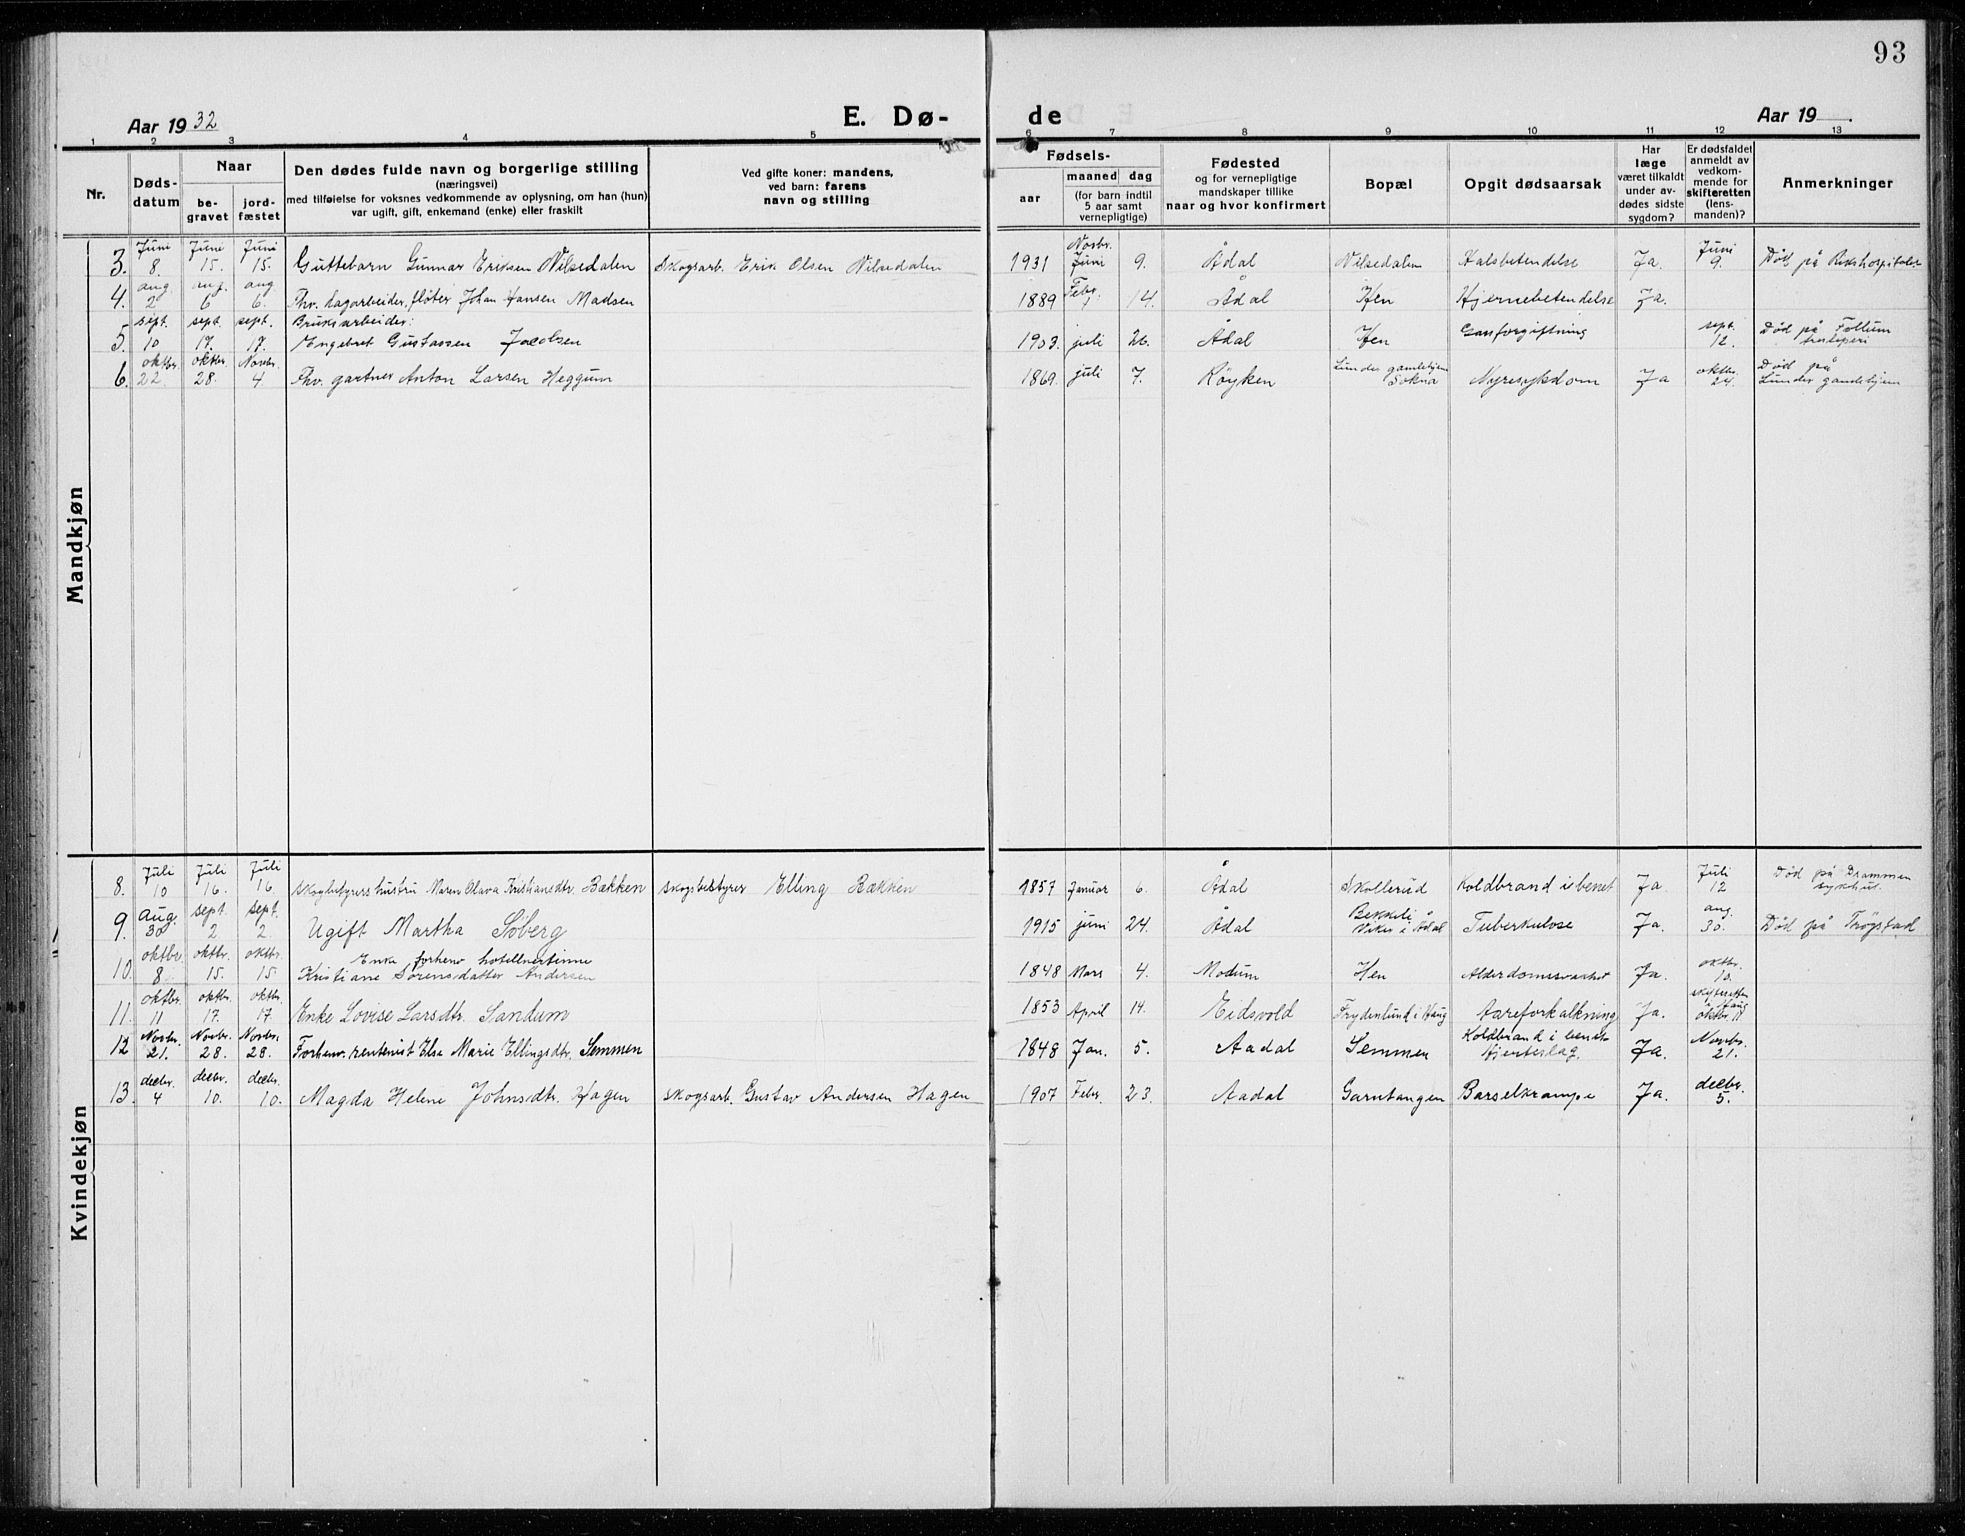 93
Aar 1932
E. Dø-
de
Aar 19 .
1 2 3 4 5 6 7 8 9 10 11 12 13
Nr.
Døds-
datum
Naar
be-
gravet
jord-
fæstet
Den dødes fulde navn og borgerlige stilling
(næringsvei)
med tilføielse for voksnes vedkommende av oplysning, om han (hun)
var ugift, gift, enkemand (enke) eller fraskilt
Ved gifte koner: mandens,
ved barn: farens
navn og stilling
Fødsels-
aar
maaned dag
(for barn indtil
5 aar samt
vernepligtige)
Fødested
og for vernepligtige
mandskaper tillike
naar og hvor konfirmert
Bopæl
Opgit dødsaarsak
Har
læge
været tilkaldt
under av-
dødes sidste
sygdom?
Er dødsfaldet
anmeldt av
vedkom-
mende for
skifteretten
(lens-
manden)?
Anmerkninger
Mandkjøn
3. Juni 8. Juni 15. Juni 15. Guttebarn Gunnar Eriksen Vilsedalen Skogsarb. Erik Olsen Vilsedalen 1931 Novbr. Juni 9. Ådal Vilsedalen Halsbetendelse Ja. Juni 9. Død på Rikshospitalet
4. aug. 2 aug. 6 aug 6. Fhv. lagarbeider, fløter Johan Hansen Madsen 1889 Febr. 14. Ådal Hen Hjernebetendelse Ja.
5. sept. 10 sept. 17. sept. 17. Bruksarbeider: Engebret Gustavsen Jacobsen 1903. juli 26. Ådal Hen Gasforgiftning sept. 12. Død på Follum
6. oktbr. 22. oktbr. 28. Novbr. 4 Fhv. gartner Anton Larsen Heggum 1869. juli 7. Røyken Lunder gamlehjem Sokna Nyresykdom Ja oktbr. 24. Død på Lunder gamlehjem
Kvindekjøn
8. Juli 10 Juli 16. Juli 16. Skogbestyrers hustru Maren Olava Kristiansdtr. Bækken Skogsbestyrer Elling Bækken 1857 Januar 6. Ådal Skollerud Koldbrand i benet Ja. Juli 12 Død på Drammen sykehus.
9. Aug. 30 sept. 2. sept. 2. Ugift Martha Søberg 1915 juni 24. Ådal Bekkeli Viker i Ådal Tuberkulose Ja. aug. 30. Død på Trøgstad
10. oktbr 8. oktbr. 15. oktbr. 15. Enke forhenv hotellvertinne Kristiane Sørensdatter Andersen 1848 Mars 4. Modum Hen Alderdomssvakhet Ja. oktbr. 10.
11. oktbr. 11 oktbr. 17. oktbr. 17 Enke Lovise Larsdtr. Sandum 1853 April 14. Eidsvold Frydenlund i Haug Aareforkalkning Ja. skifteretten i Haug oktbr. 11
12 Novbr. 21. Novbr. 28. Novbr. 28. Forhenv. rentenist Else Marie Ellingsdtr. Semmen 1848 Jan. 5. Aadal Semmen Koldbrand i benet Hjerteslag. Ja. Novbr. 21.
13. decbr. 4 decbr. 10. decbr. 10. Magda Helene Johnsdtr. Hagen skogsarb. Gustav Andersen Hagen 1907 Febr. 23. Aadal Garntangen Barselkrampe Ja. decbr. 5.